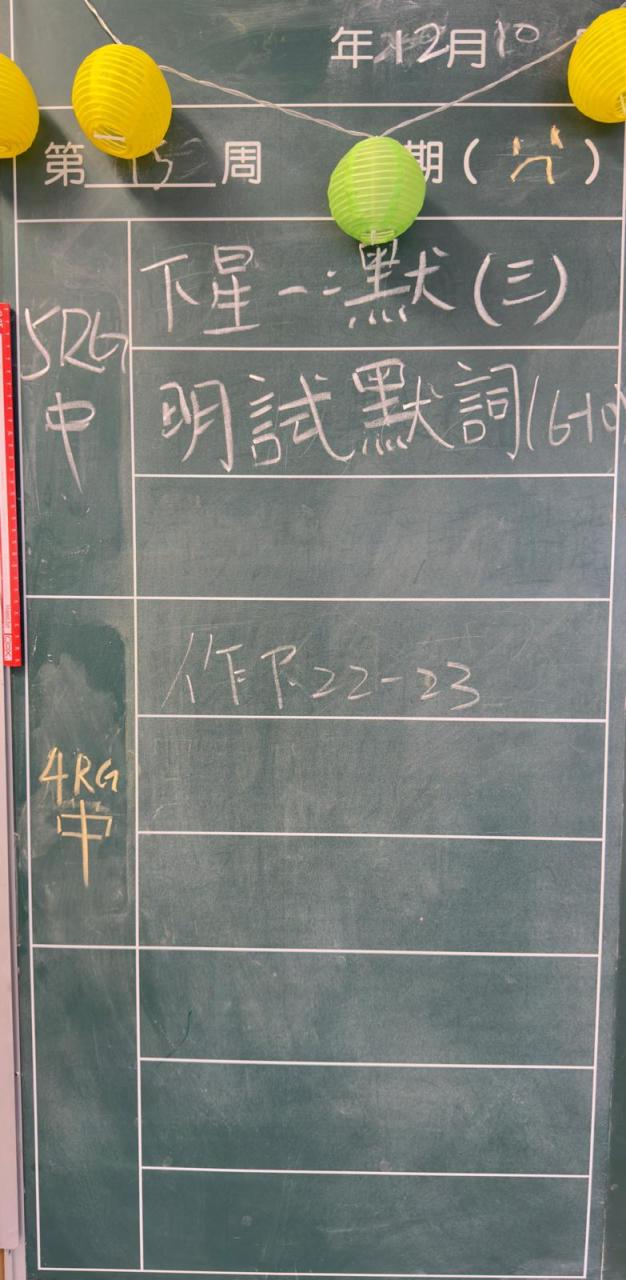 年12月10
第15周 期(六)
5RG
中
下星一:默(三)
明試默詞(6-10)
4RG
中
作P.22-23